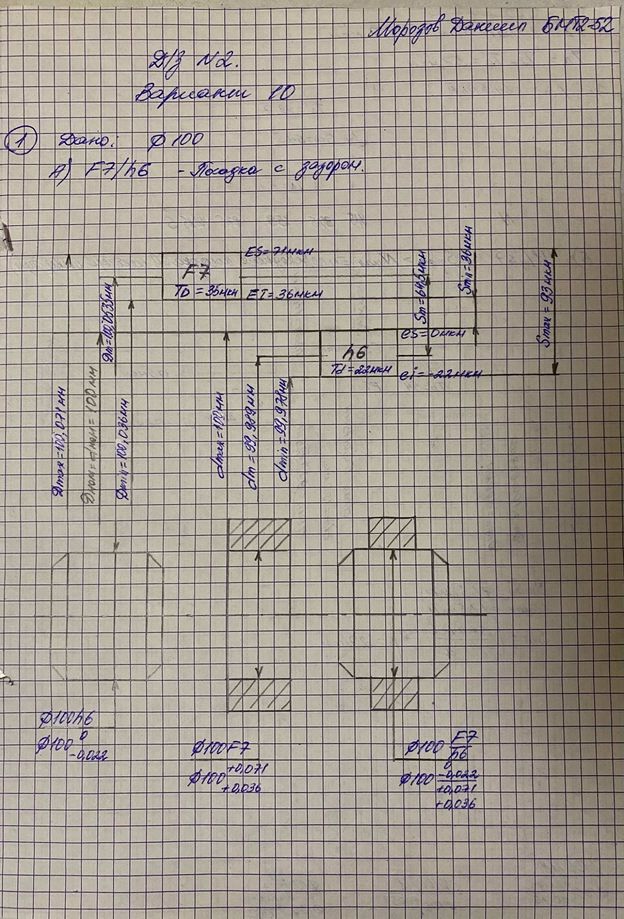 Морозов Даниил БМТ2-52
Д/З N2.
Вариант 10
1 Дано: ϕ100
А) F7/h6 - Посадка с зазором.
ES=71мкм
F7
TD=35мкм
EI=36мкм
Dm=100,0535мм
Sm=64,5мкм
Smin=36мкм
Smax=93мкм
es=0мкм
h6
Td=22мкм
ei=-22мкм
Dmax=100,071мм
Dном=dном=100мм
Dmin=100,036мм
dmax=100мм
dm=99,989мм
dmin=99,978мм
ϕ100h6
ϕ100 0
-0,022
ϕ100F7
ϕ100 +0,071
+0,036
ϕ100 F7
h6
0
ϕ100 -0,022
+0,071
+0,036